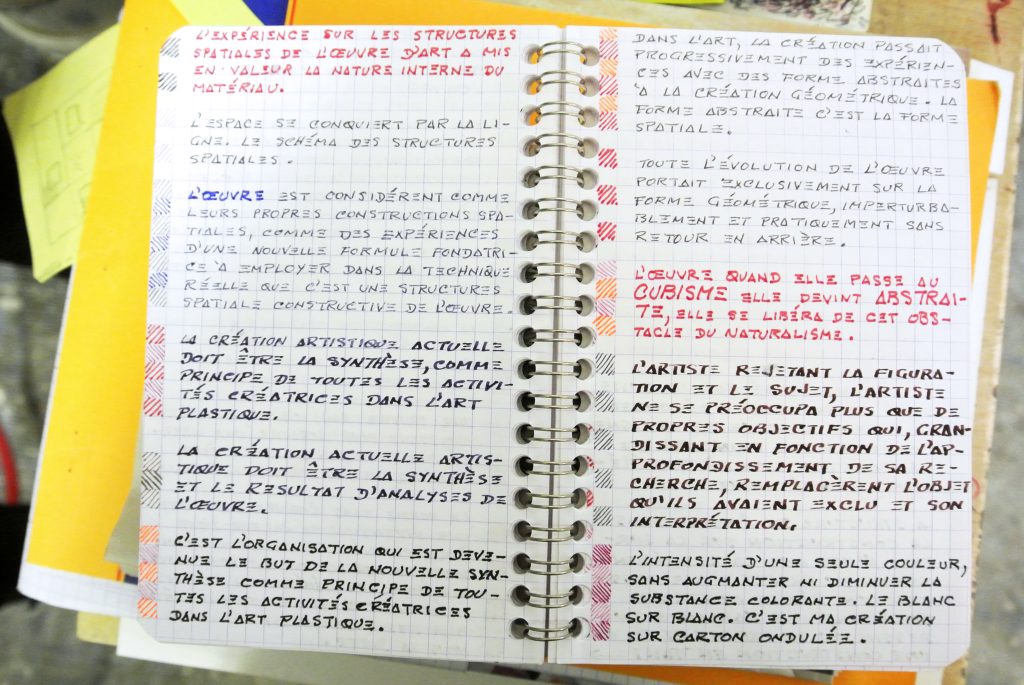 L'EXPÉRIENCE SUR LES STRUCTURES
SPATIALES DE L'ŒUVRE D'ART A MIS
EN VALEUR LA NATURE INTERNE DU
MATÉRIAU.
L'ESPACE SE CONQUIERT PAR LA LI-
GNE. LE SCHÉMA DES STRUCTURES
SPATIALES.
L'ŒUVRE EST CONSIDÉRENT COMME
LEURS PROPRES CONSTRUCTIONS SPA-
TIALES, COMME DES EXPÉRIENCES
D'UNE NOUVELLE FORMULE FONDATRI-
CE À EMPLOYER DANS LA TECHNIQUE
RÉELLE QUE C'EST UNE STRUCTURES
SPATIALE CONSTRUCTIVE DE L'ŒUVRE.
LA CRÉATION ARTISTIQUE ACTUELLE
DOIT ÊTRE LA SYNTHÈSE, COMME
PRINCIPE DE TOUTES LES ACTIVI-
TÉS CRÉATRICES DANS L'ART
PLASTIQUE.
LA CRÉATION ACTUELLE ARTIS-
TIQUE DOIT ÊTRE LA SYNTHÈSE
ET LE RESULTAT D'ANALYSES DE
L'ŒUVRE.
C'EST L'ORGANISATION QUI EST DEVE-
NUE LE BUT DE LA NOUVELLE SYN-
THÈSE COMME PRINCIPE DE TOU-
TES LES ACTIVITÉS CRÉATRICES
DANS L'ART PLASTIQUE.
DANS L'ART, LA CRÉATION PASSAIT
PROGRESSIVEMENT DES EXPÉRIEN-
CES AVEC DES FORME ABSTRAITES
À LA CRÉATION GÉOMÉTRIQUE. LA
FORME ABSTRAITE C'EST LA FORME
SPATIALE.
TOUTE L'ÉVOLUTION DE L'ŒUVRE
PORTAIT EXCLUSIVEMENT SUR LA
FORME GÉOMÉTRIQUE, IMPERTURBA-
BLEMENT ET PRATIQUEMENT SANS
RETOUR EN ARRIÈRE.
L'ŒUVRE QUAND ELLE PASSE AU
CUBISME ELLE DEVINT ABSTRAI-
TE, ELLE SE LIBÉRA DE CET OBS-
TACLE DU NATURALISME.
L'ARTISTE REJETANT LA FIGURA-
TION ET LE SUJET, L'ARTISTE
NE SE PRÉOCCUPA PLUS QUE DE
PROPRES OBJECTIFS QUI, GRAN-
DISSANT EN FONCTION DE L'AP-
PROFONDISSEMENT DE SA RE-
CHERCHE, REMPLACÈRENT L'OBJET
QU'ILS AVAIENT EXCLU ET SON
INTERPRÉTATION.
L'INTENSITÉ D'UNE SEULE COULEUR,
SANS AUGMANTER NI DIMINUER LA
SUBSTANCE COLORANTE. LE BLANC
SUR BLANC. C'EST MA CRÉATION
SUR CARTON ONDULÉE.